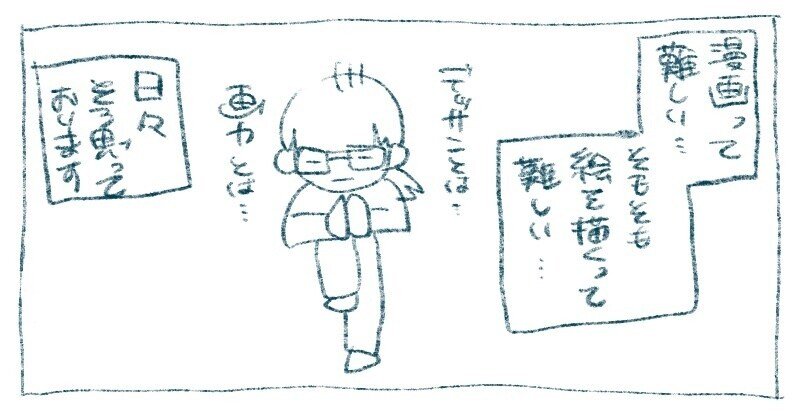 漫画って
難しい…
そもそも
絵を描くって
難しい…
デッサンとは…
画力とは…
日々
そう思って
おります